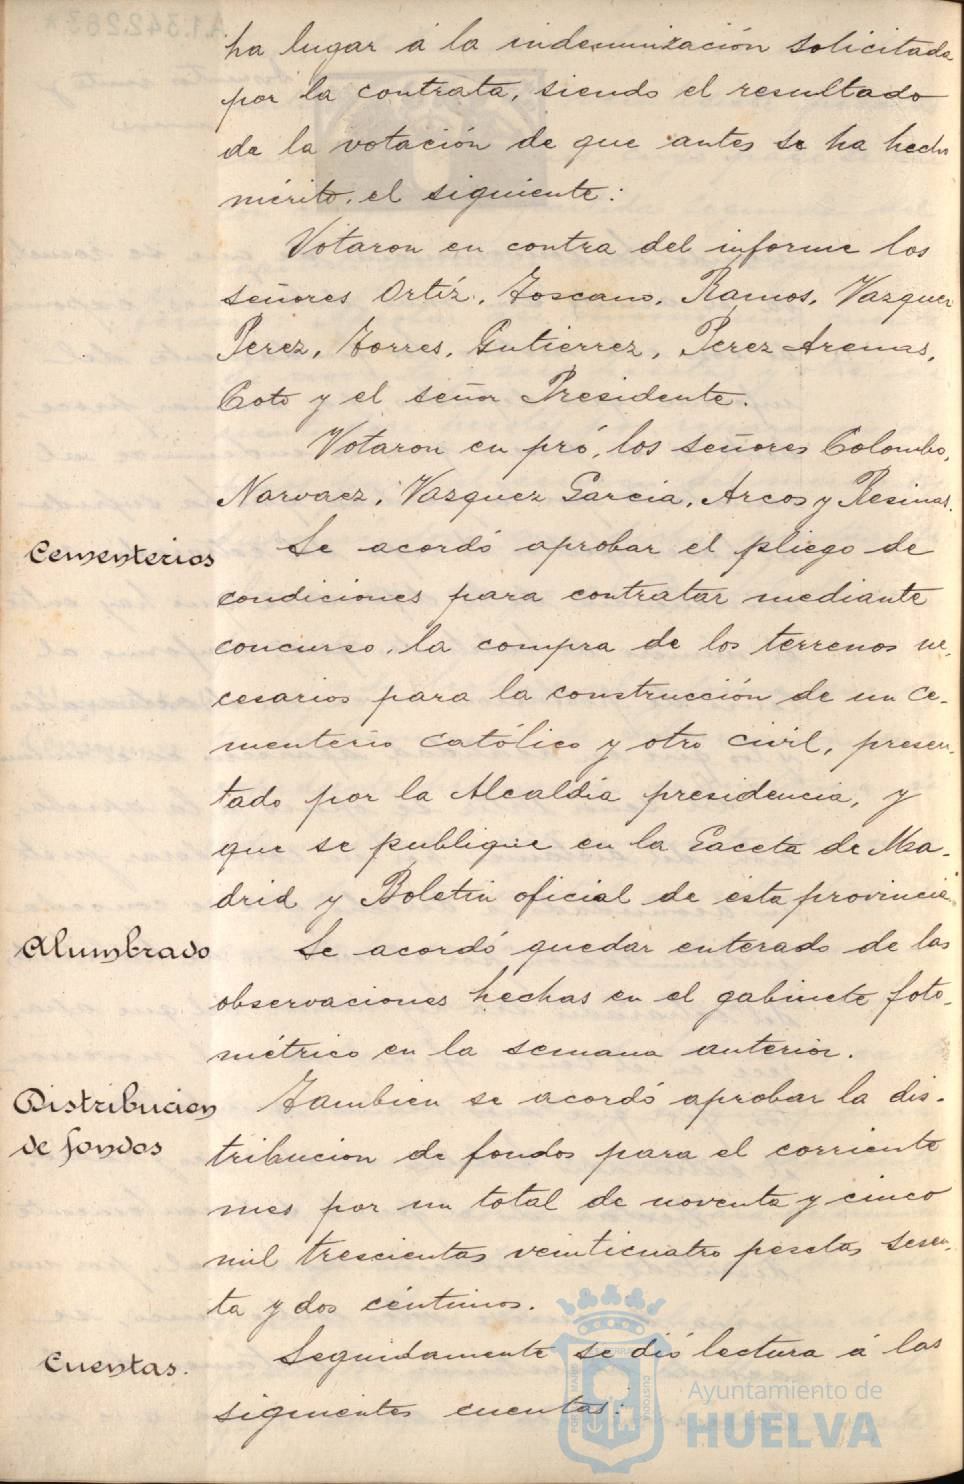 ha lugar á la indemnización solicitada
por la contrata, siendo el resultado
de la votación de que antes se ha hecho
mérito, el siguiente:
Votaron en contra del informe los
señores Ortíz, Toscano, Ramos, Vazquez
Perez, Torres, Gutierrez, Perez Arenas,
Coto y el señor Presidente.
Votaron en pró, los señores Colombo,
Narvaez, Vazquez Garcia, Arcos y Resinas.
Cementerios
Se acordó aprobar el pliego de
condiciones para contratar mediante
concurso, la compra de los terrenos ne-
cesarios para la construcción de un Ce-
menterio católico y otro civil, presen-
tado por la Alcaldia presidencia, y
que se publique en la Gaceta de Ma-
drid y Boletin oficial de esta provincia
Alumbrado
Se acordó quedar enterado de las
observaciones hechas en el gabinete foto-
métrico en la semana anterior.
Distribucion
de fondos
Tambien se acordó aprobar la dis-
tribucion de fondos para el corriente
mes por un total de noventa y cinco
mil trescientas veinticuatro pesetas sesen-
ta y dos céntimos.
Cuentas.
Seguidamente se dió lectura á las
siguientes cuentas:
Ayuntamiento de
HUELVA